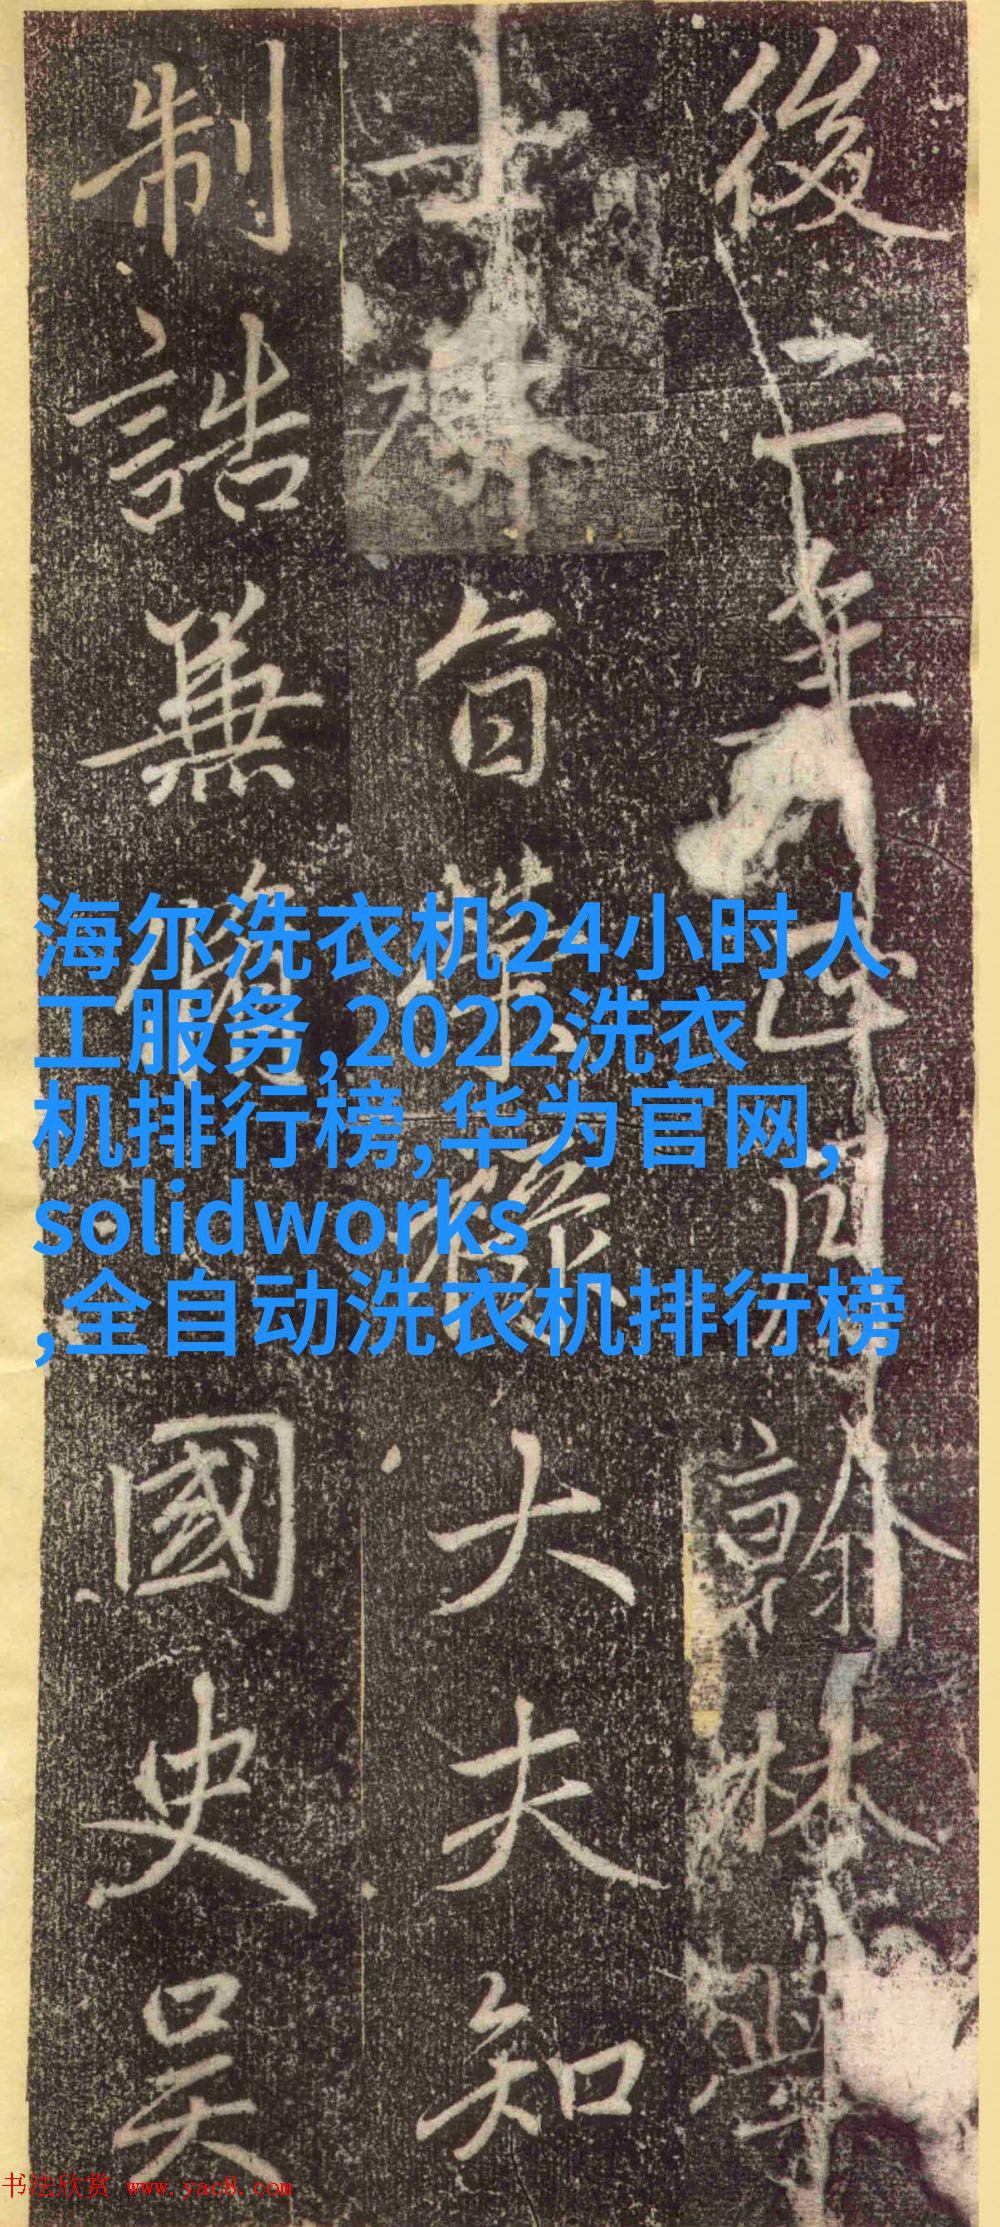 後二年正月翰林學
士奉旨撰銀大夫知
制誥兼修國史吴
海尔洗衣机24小时人
工服务,2022洗衣
机排行榜,华为官网,
solidworks
,全自动洗衣机排行榜
书法欣赏 www.yac8.com